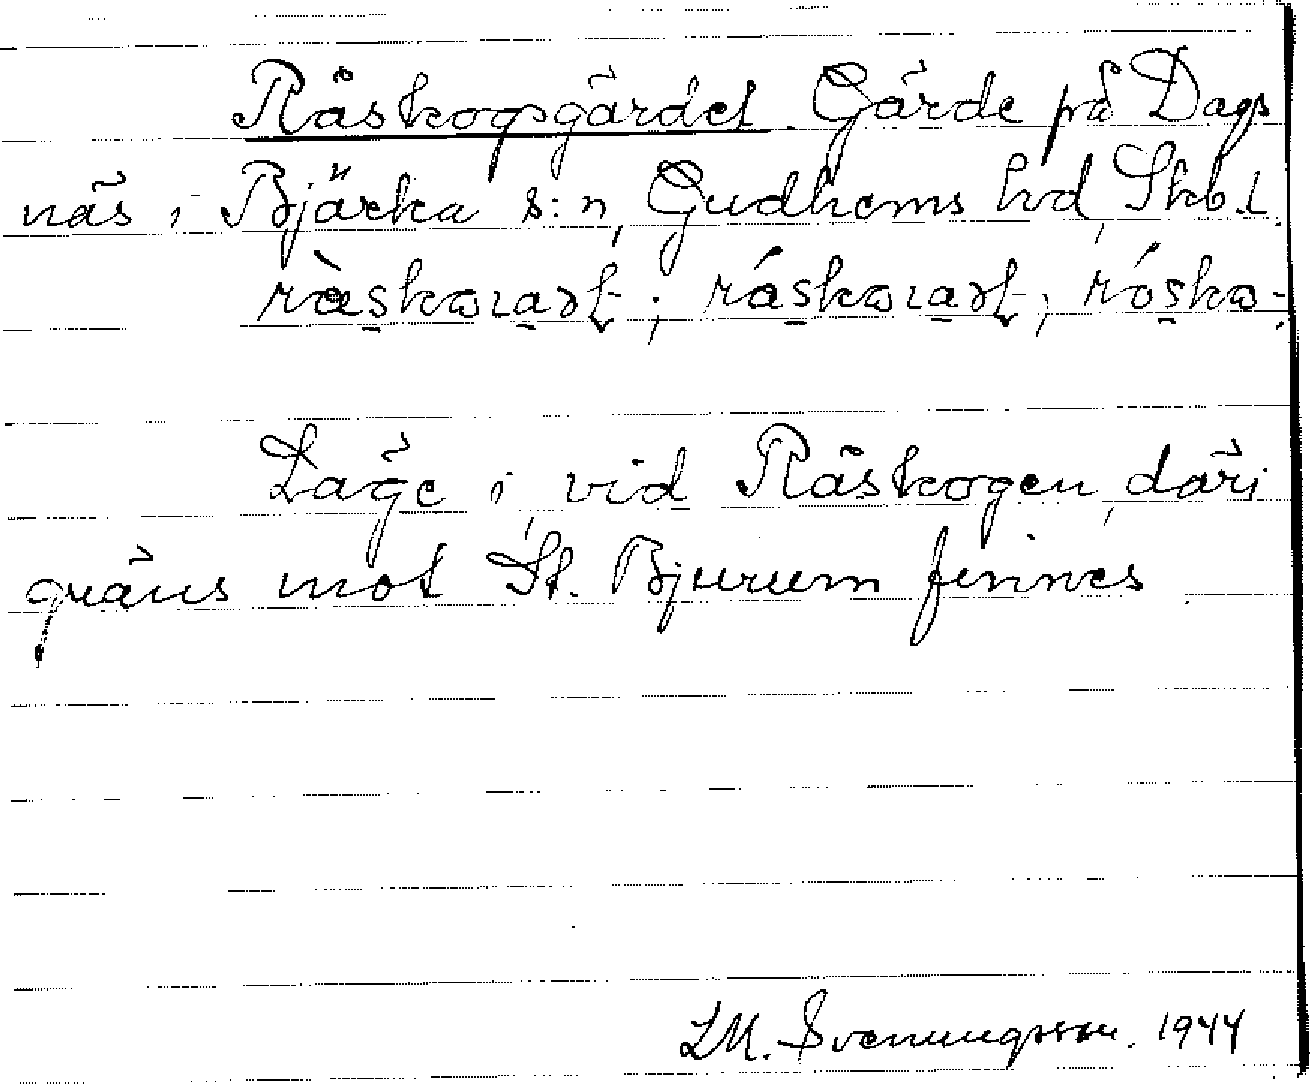 Råskogsgärdet. Gärde på Dags
näs i Bjärka s:n, Gudhems hd, Skbl.
ràskoɩadt; ráskoɩadt; rósko-
Läge i, vid Råskogen, där i
gräns mot St. Bjurum finnes.
LM. Svenungsson. 1944